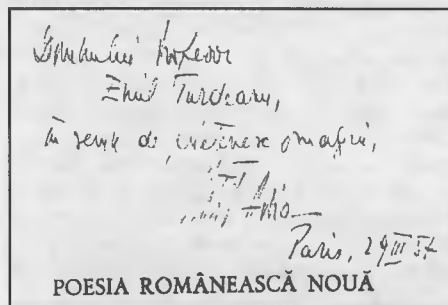 Domnului Profesor
Emil Turdeanu,
în semn de prietenesc omagiu,
Paris, 29 III 57
POESIA ROMÂNEASCĂ NOUĂ